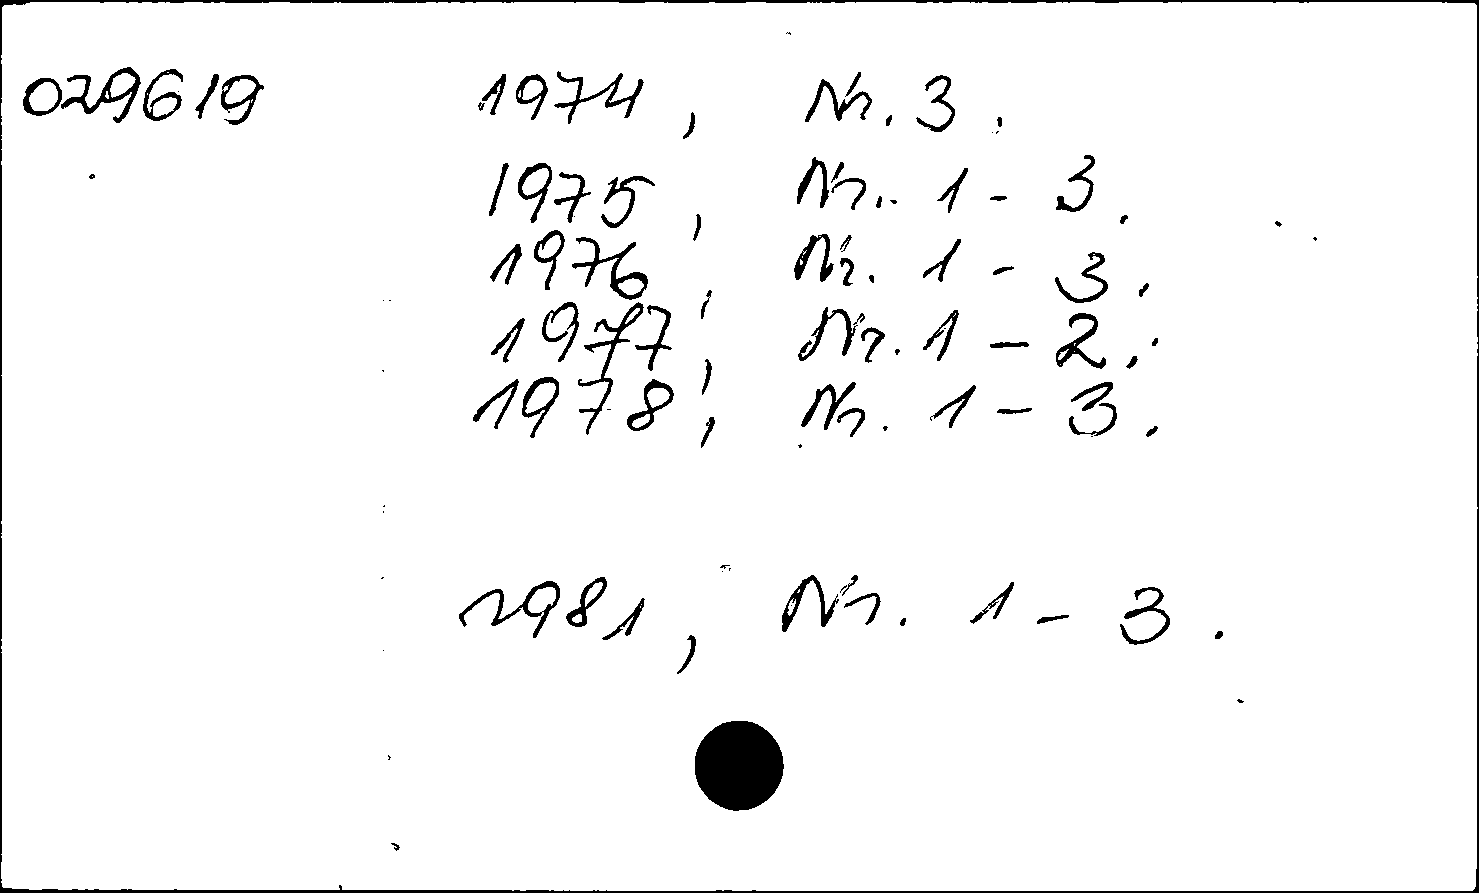 029619 1974, Nr. 3.
1975, Nr. 1 - 3.
1976, Nr. 1 - 3.
1977, Nr. 1 - 2.
1978, Nr. 1 - 3.
1981, Nr. 1 - 3.